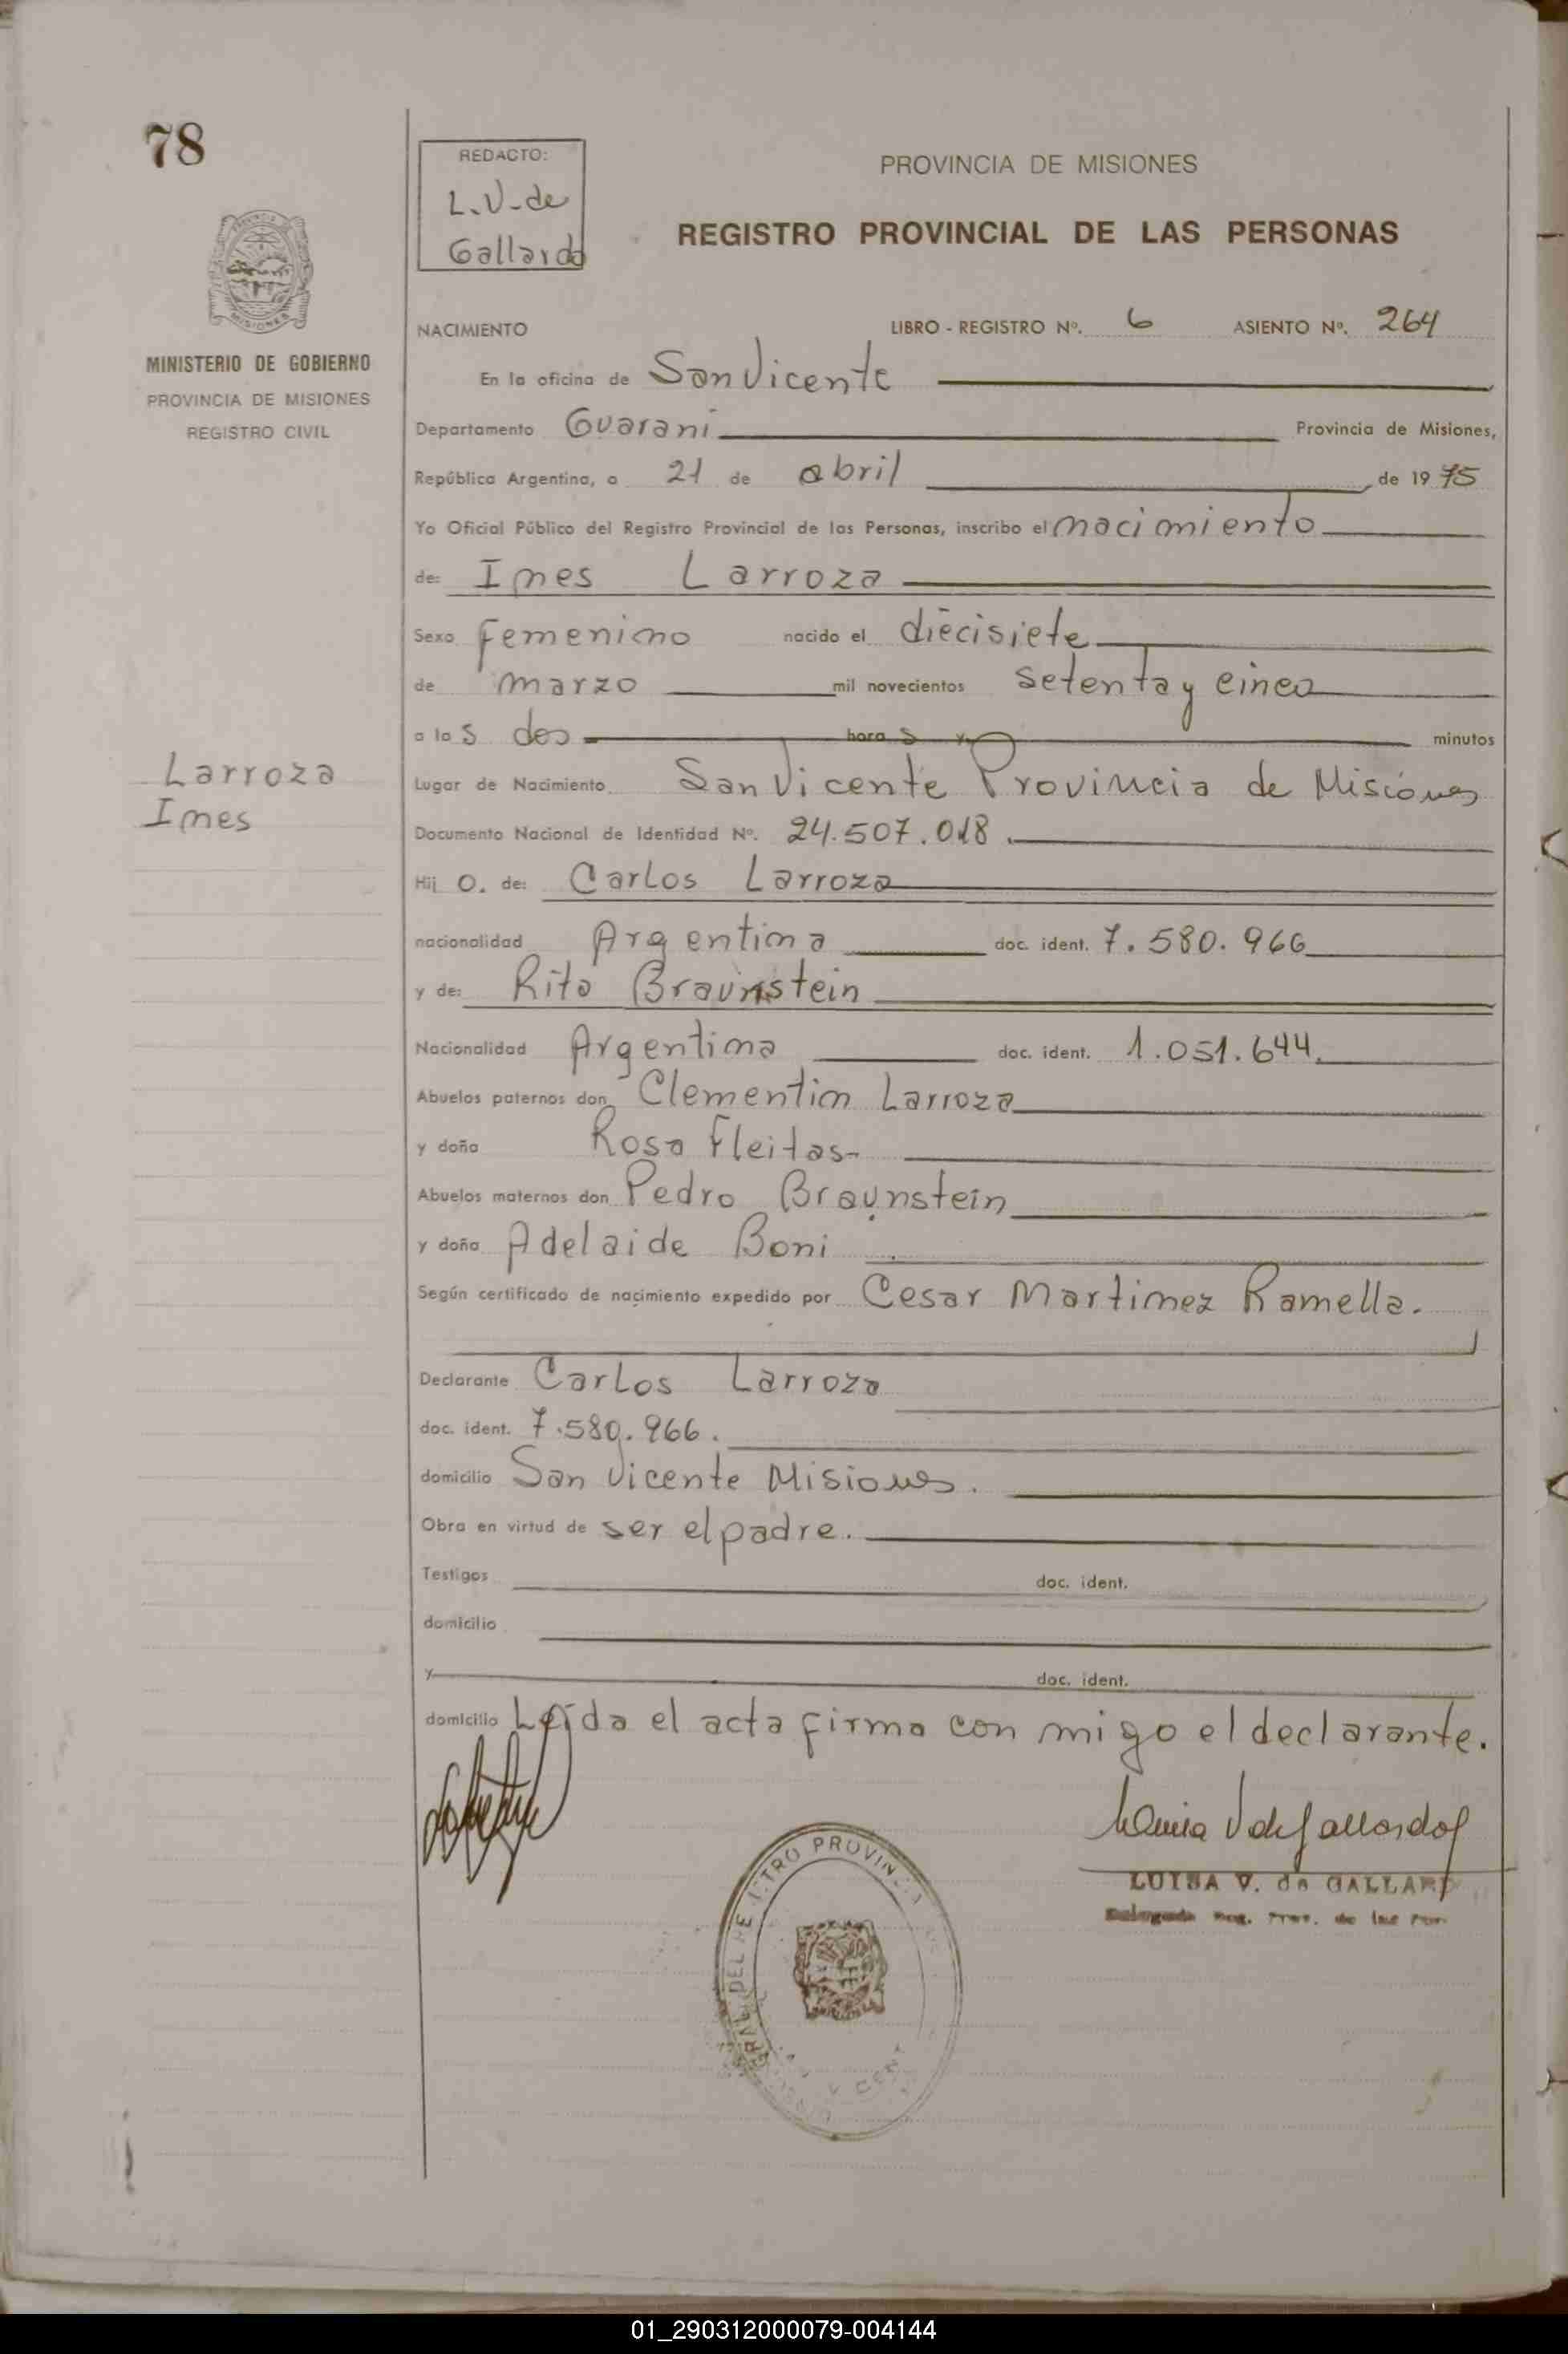 78
REDACTO:
L.V-de
Gallardo
PROVINCIA DE MISIONES
REGISTRO PROVINCIAL DE LAS PERSONAS
MISIONES
MINISTERIO DE GOBIERNO
PROVINCIA DE MISIONES
REGISTRO CIVIL
NACIMIENTO LIBRO - REGISTRO Nº. 6 ASIENTO Nº. 264
En la oficina de San Vicente
Departamento Guarani Provincia de Misiones,
República Argentina, a 21 de abril de 1975
Yo Oficial Público del Registro Provincial de las Personas, inscribo el nacimiento
de: Ines Larroza
Sexo femenino nacido el diecisiete
de marzo mil novecientos setenta y cinco
a las dos horas y minutos
Larroza
Ines
Lugar de Nacimiento San Vicente Provincia de Misiones
Documento Nacional de Identidad Nº. 24.507.018.
Hij o. de: Carlos Larroza
nacionalidad Argentina doc. ident. 7.580.966
y de: Rita Braunstein
Nacionalidad Argentina doc. ident. 1.051.644.
Abuelos paternos don Clementin Larroza
y doña Rosa Fleitas-
Abuelos maternos don Pedro Braunstein
y doña Adelaide Boni
Según certificado de nacimiento expedido por Cesar Martinez Ramella.
Declarante Carlos Larroza
doc. ident. 7.580.966.
domicilio San Vicente Misiones.
Obra en virtud de ser el padre.
Testigos doc. ident.
domicilio
y doc. ident.
domicilio Leída el acta firma con migo el declarante.
Luisa V de Gallardo
LUISA V. de GALLARD
Delegada Reg. Prov. de las Per.
01_290312000079-004144